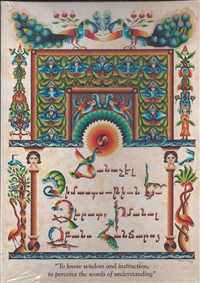 Ճանաչել
Զիմաստութիւն Եւ
Զխրատ, Իմանալ
Զբանս Հանճարոյ
"To know wisdom and instruction;
to perceive the words of understanding"